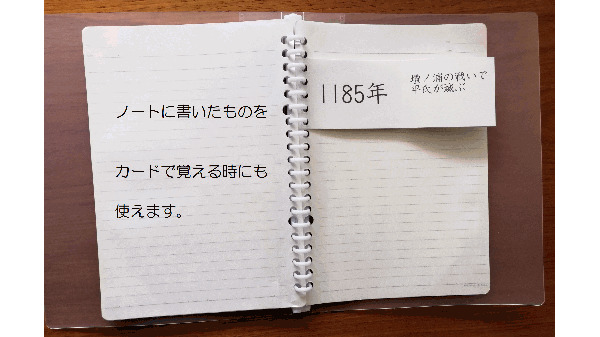 ノートに書いたものを
カードで覚える時にも
使えます。
1185年
壇ノ浦の戦いで
平氏が滅ぶ